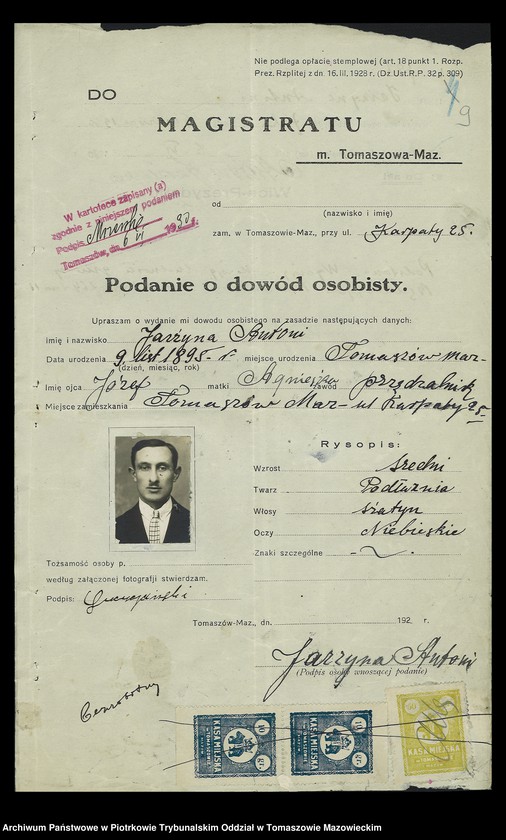 Nie podlega opłacie stemplowej (art. 18 punkt 1. Rozp.
Prez. Rzplitej z dn. 16. III. 1928 r. (Dz. Ust. R. P. 32 p. 309)
9
DO
MAGISTRATU
m. Tomaszowa-Maz.
W kartotece zapisany (a)
zgodnie z niniejszem podaniem
Podpis
Tomaszów, dn. 6 VI 1930 r.
od
(nazwisko i imię)
zam. w Tomaszowie-Maz., przy ul. Karpaty 25.
Podanie o dowód osobisty.
Upraszam o wydanie mi dowodu osobistego na zasadzie następujących danych:
imię i nazwisko Jarzyna Antoni
Data urodzenia 9. list 1895 - r. miejsce urodzenia Tomaszów Maz-
(dzień, miesiąc, rok)
Imię ojca Józef matki Agnieszka zawód przędzalnik
Miejsce zamieszkania Tomaszów Maz- ul Karpaty 25-
Rysopis:
Wzrost średni
Twarz Podłużna
Włosy szatyn
Oczy Niebieskie
Znaki szczególne
Tożsamość osoby p.
według załączonej fotografji stwierdzam.
Podpis:
Tomaszów-Maz., dn. 192 r.
Jarzyna Antoni
(Podpis osoby wnoszącej podanie)
Bezrobotny
10 gr. KASA MIEJSKA 10 gr.
10 gr. KASA MIEJSKA 10 gr.
50 KASA MIEJSKA
Archiwum Państwowe w Piotrkowie Trybunalskim Oddział w Tomaszowie Mazowieckim